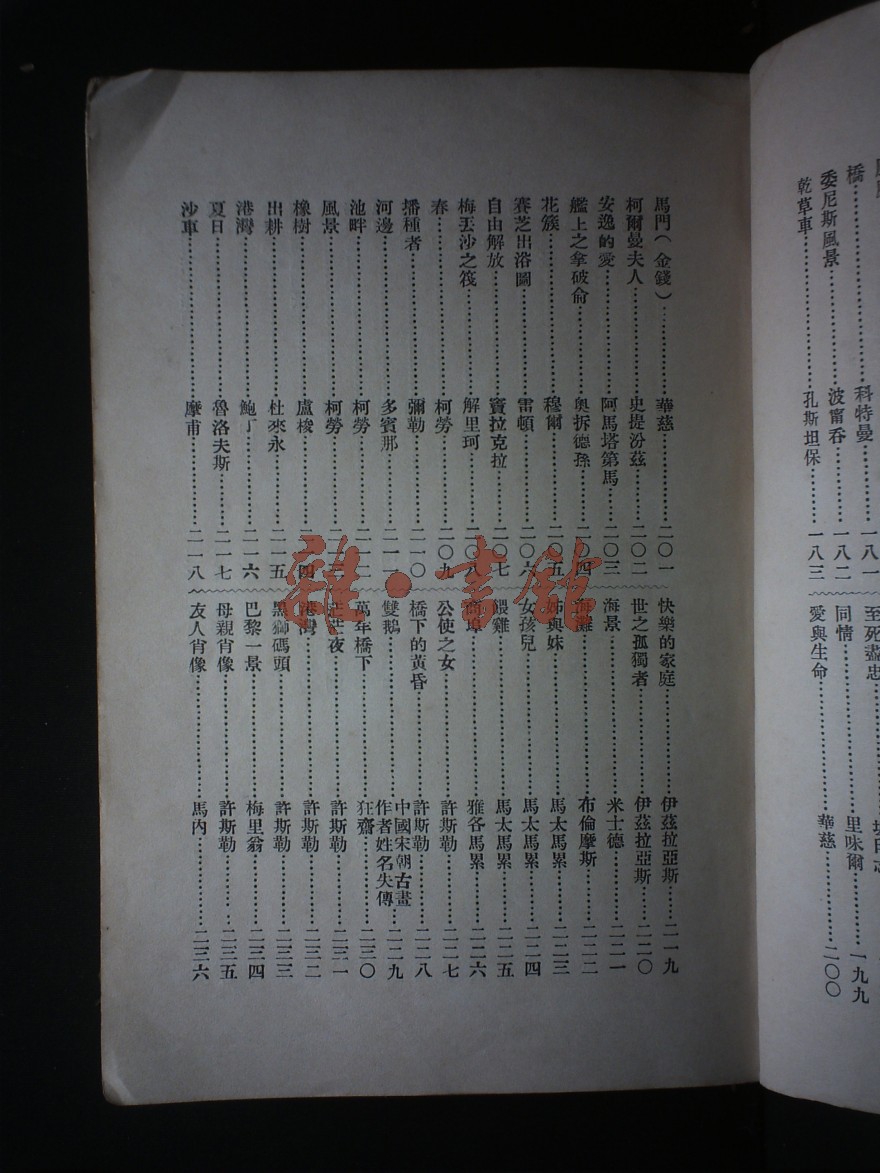 橋……科特曼……一八一
委尼斯風景……波甯吞……一八二
乾草車……孔斯坦保……一八三
至死盡忠……
同情……里味爾……一九九
愛與生命……華慈……二〇〇
馬門（金錢）……華慈……二〇一
柯爾曼夫人……史提汾茲……二〇二
安逸的愛……阿馬塔第馬……二〇三
艦上之拿破侖……奧拆德孫……二〇四
花簇……穆爾……二〇五
賽芝出浴圖……雷頓……二〇六
自由解放……竇拉克拉……二〇七
梅丟沙之筏……解里珂……二〇八
春……柯勞……二〇九
播種者……彌勒……二一〇
河邊……多賓那……二一一
池畔……柯勞……二一二
風景……柯勞……二一三
橡樹……盧梭……二一四
出耕……杜來永……二一五
港灣……鮑丁……二一六
夏日……魯洛夫斯……二一七
沙車……摩甫……二一八
快樂的家庭……伊茲拉亞斯……二一九
世之孤獨者……伊茲拉亞斯……二二〇
海景……米士德……二二一
海灘……布倫摩斯……二二二
姊與妹……馬太馬累……二二三
女孩兒……馬太馬累……二二四
餵雞……馬太馬累……二二五
商埠……雅各馬累……二二六
公使之女……許斯勒……二二七
橋下的黃昏……許斯勒……二二八
雙鵝……中國宋朝古畫作者姓名失傳……二二九
萬年橋下……狂齋……二三〇
茫茫夜……許斯勒……二三一
港灣……許斯勒……二三二
黑獅碼頭……許斯勒……二三三
巴黎一景……梅里翁……二三四
母親肖像……許斯勒……二三五
友人肖像……馬內……二三六
雜·書館